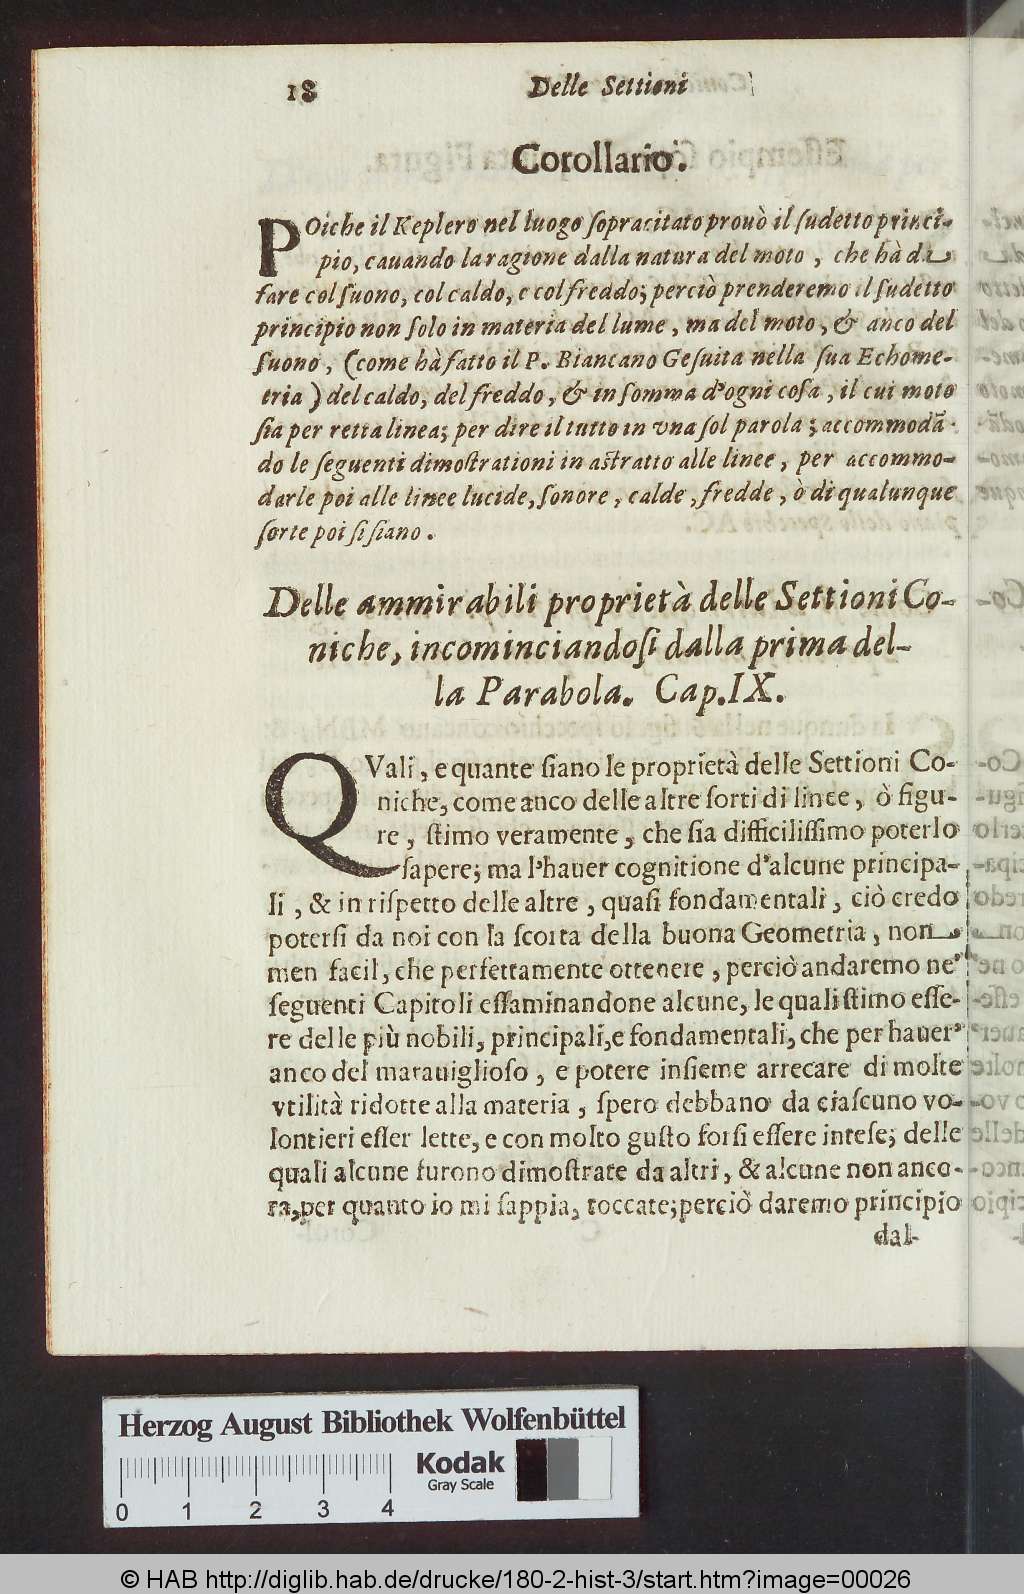 18 Delle Settioni
Corollario.
POiche il Keplero nel luogo ſopracitato prouò il ſudetto princi-
pio, cauando la ragione dalla natura del moto, che hà da
fare col ſuono, col caldo, e col freddo; perciò prenderemo il ſudetto
principio non ſolo in materia del lume, ma del moto, & anco del
ſuono, (come hà fatto il P. Biancano Geſuita nella ſua Echome-
tria) del caldo, del freddo, & in ſomma d'ogni coſa, il cui moto
ſia per retta linea; per dire il tutto in vna ſol parola; accommodã-
do le ſeguenti dimoſtrationi in aſtratto alle linee, per accommo-
darle poi alle linee lucide, ſonore, calde, fredde, ò di qualunque
ſorte poi ſi ſiano.
Delle ammirabili proprietà delle Settioni Co-
niche, incominciandoſi dalla prima del-
la Parabola. Cap. IX.
QVali, e quante ſiano le proprietà delle Settioni Co-
niche, come anco delle altre ſorti di linee, ò figu-
re, ſtimo veramente, che ſia difficiliſſimo poterlo
ſapere; ma l'hauer cognitione d'alcune principa-
li, & in riſpetto delle altre, quaſi fondamentali, ciò credo
poterſi da noi con la ſcorta della buona Geometria, non
men facil, che perfettamente ottenere, perciò andaremo ne'
ſeguenti Capitoli eſſaminandone alcune, le quali ſtimo eſſe-
re delle più nobili, principali, e fondamentali, che per hauer'
anco del marauiglioſo, e potere inſieme arrecare di molte
vtilità ridotte alla materia, ſpero debbano da ciaſcuno vo-
lontieri eſſer lette, e con molto guſto forſi eſſere inteſe; delle
quali alcune furono dimoſtrate da altri, & alcune non anco-
ra, per quanto io mi ſappia, toccate; perciò daremo principio
dal-
Herzog August Bibliothek Wolfenbüttel
Kodak
Gray Scale
0 1 2 3 4
© HAB http://diglib.hab.de/drucke/180-2-hist-3/start.htm?image=00026